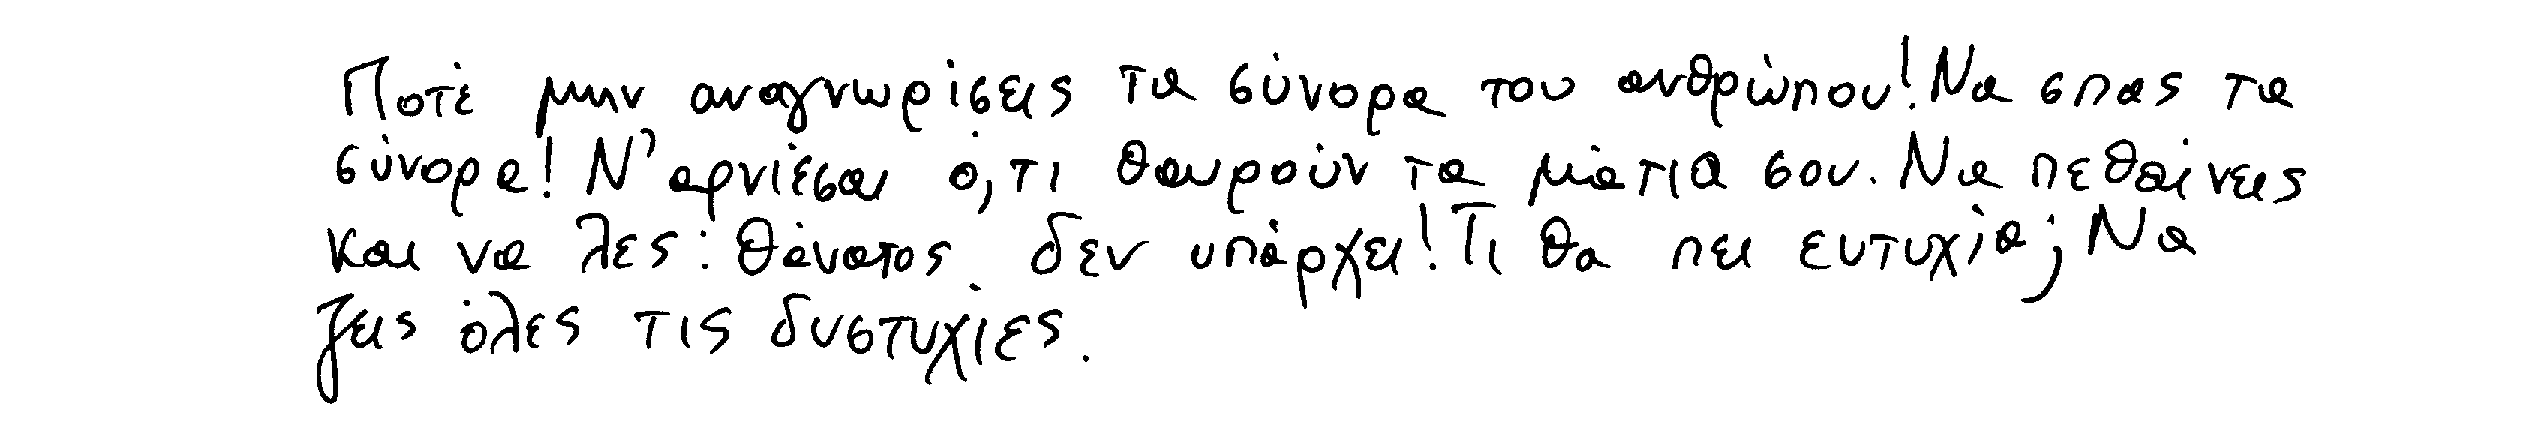 Ποτέ μην αναγνωρίσεις τα σύνορα του ανθρώπου! Να σπας τα
σύνορα! Ν' αρνιέσαι ό,τι θαυρούν τα μάτια σου. Να πεθαίνεις
και να λες: θάνατος δεν υπάρχει! Τι θα πει ευτυχία; Να
ζεις όλες τις δυστυχίες.